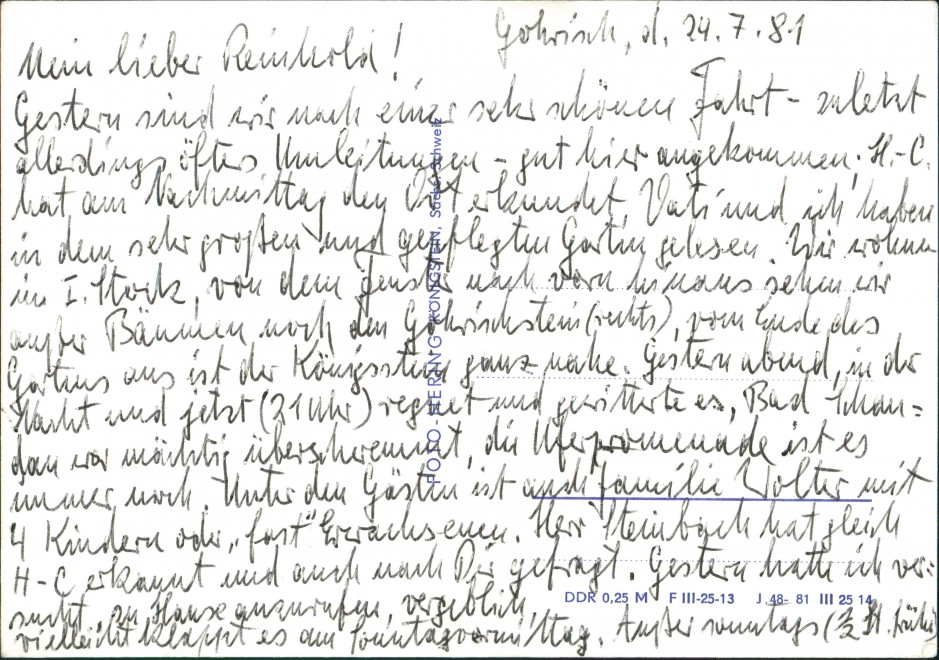 Gohrisch, d. 24. 7. 81
Mein lieber Reinhold!
Gestern sind wir nach einer sehr schönen Fahrt - zuletzt
allerdings öftes Umleitungen - gut hier angekommen. H.-C.
hat am Nachmittag den Ort erkundet, Vati und ich haben
in dem sehr großen und gepflegten Garten gelesen. Wir wohnen
im I. Stock, von dem Fenster nach vorn hinaus sehen wir
außer Bäumen noch den Gohrischstein (rechts), vom Ende des
Gartens aus ist der Königstein ganz nahe. Gestern abend, in der
Nacht und jetzt (21 Uhr) regnet und gewitterte es, Bad Schan=
dau war mächtig überschwemmt, die Uferpromenade ist es
immer noch. Unter den Gästen ist auch Familie Wolter mit
4 Kindern oder „fast" Erwachsenen. Herr Steinbach hat gleich
H-C erkannt und auch nach Dir gefragt. Gestern hatte ich ver-
sucht, zu Hause anzurufen, vergeblich,
vielleicht klappt es am Sonntagvormittag. Außer sonntags (
FOTO-HERING KÖNIGSTEIN, Sächs. Schweiz
DDR 0,25 M F III-25-13 J 48- 81 III 25 14